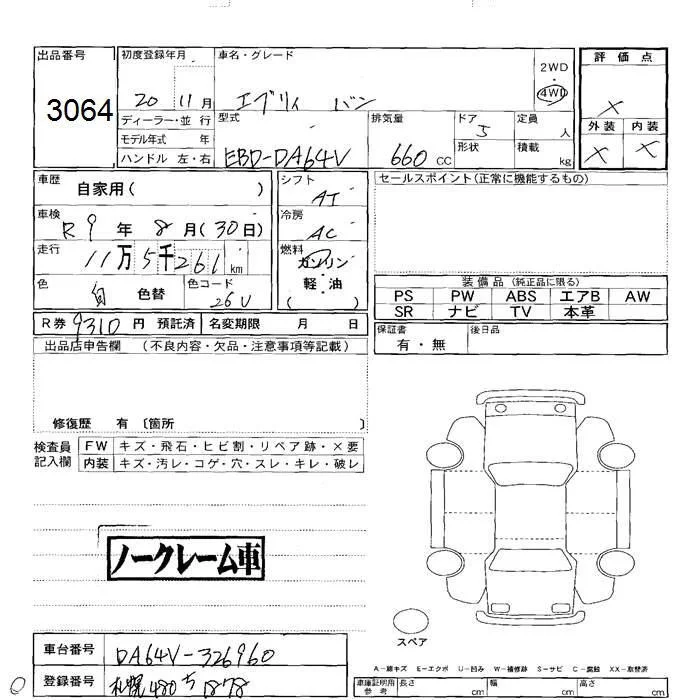 出品番号
3064
初度登録年月
20 11月
車名・グレード
エブリィ バン
2WD
・
4WD
評価点
×
外装 内装
× ×
ディーラー・並行
モデル年式 年
ハンドル 左・右
型式
EBD-DA64V
排気量
660 CC
ドア
5
形状
定員
人
積載
kg
車歴
自家用( )
車検
R9年8月(30日)
走行
11万5千261km
色
白 色替
色コード
26U
シフト
AT
冷房
AC
燃料
ガソリン
軽・油
( )
セールスポイント(正常に機能するもの)
装備品(純正品に限る)
PS PW ABS エアB AW
SR ナビ TV 本革
保証書
有・無
後日品
R券 9310円 預託済 名変期限 月 日
出品店申告欄 (不良内容・欠品・注意事項等記載)
修復歴 有 〔箇所 〕
検査員
記入欄
FW キズ・飛石・ヒビ割・リペア跡・×要
内装 キズ・汚レ・コゲ・穴・スレ・キレ・破レ
ノークレーム車
スペア
車台番号 DA64V-326960
登録番号 札幌480
A-線キズ E-エクボ U-凹み W-補修跡 S-サビ C-腐蝕 XX-取替済
車庫証明用
参考
長さ cm 幅 cm 高さ cm